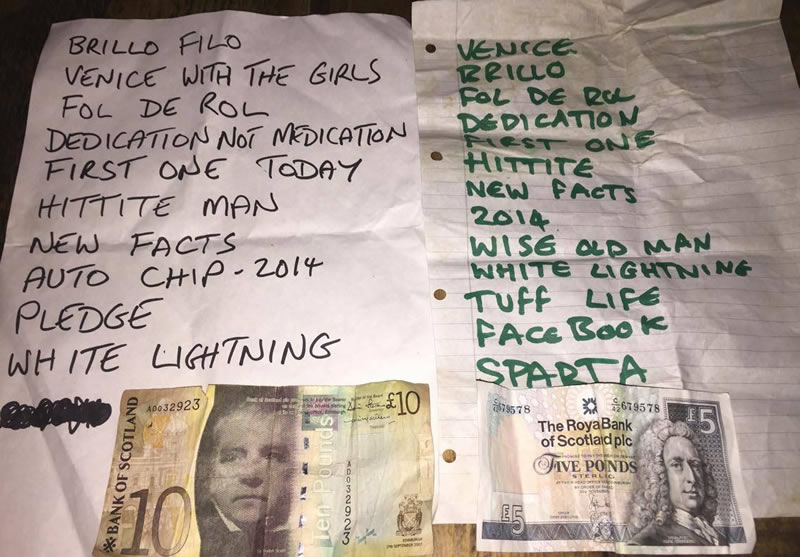 BRILLO FILO
VENICE WITH THE GIRLS
FOL DE ROL
DEDICATION NOT MEDICATION
FIRST ONE TODAY
HITTITE MAN
NEW FACTS
AUTO CHIP - 2014
PLEDGE
WHITE LIGHTNING
VENICE
BRILLO
FOL DE ROL
DEDICATION
FIRST ONE
HITTITE
NEW FACTS
2014
WISE OLD MAN
WHITE LIGHTNING
TUFF LIFE
FACEBOOK
SPARTA
BANK OF SCOTLAND
AD032923
£10
Ten Pounds
AD032923
10
679578
679578
£5
The Roya Bank
of Scotlaid plc
FIVE PONDS
£5